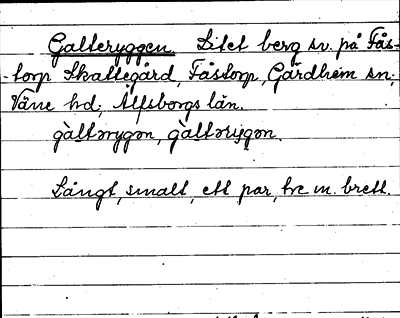 Galteryggen. Litet berg sv. på Fås-
torp Skattegård, Fåstorp, Gärdhem sn;
Väne hd; Älfsborgs län.
gàltərygən, gàltərygən.
Långt, smalt, ett par, tre m. brett.